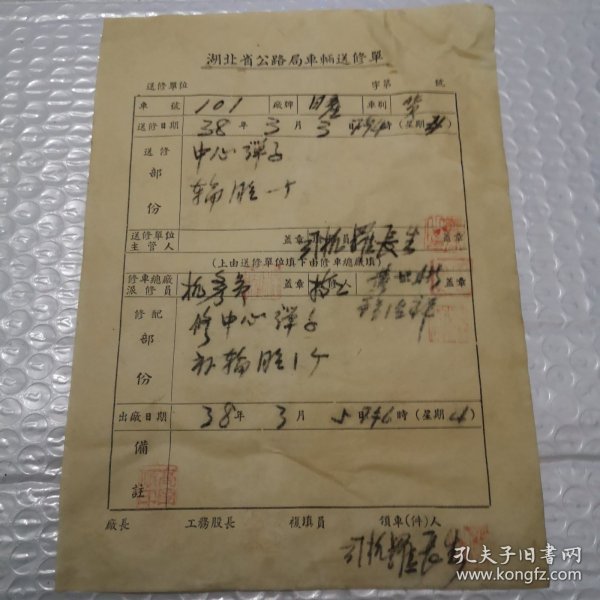 湖北省公路局車輛送修單
送修單位 字第 號
車號 101 廠牌 車別
送修日期 38年3月3日 時(星期 )
送修部份 中心彈子
輪胎一个
送修單位主管人 蓋章 司机羅長生 蓋章
(上由送修單位填下由修車總廠填)
修車總廠派修員 蓋章 蓋章
修配部份 修中心彈子
补輪胎1个
出廠日期 38年3月5日 時(星期 )
備註
廠長 工務股長 複填員 領車(件)人
司机羅長生
孔夫子旧书网
www.kongfz.com